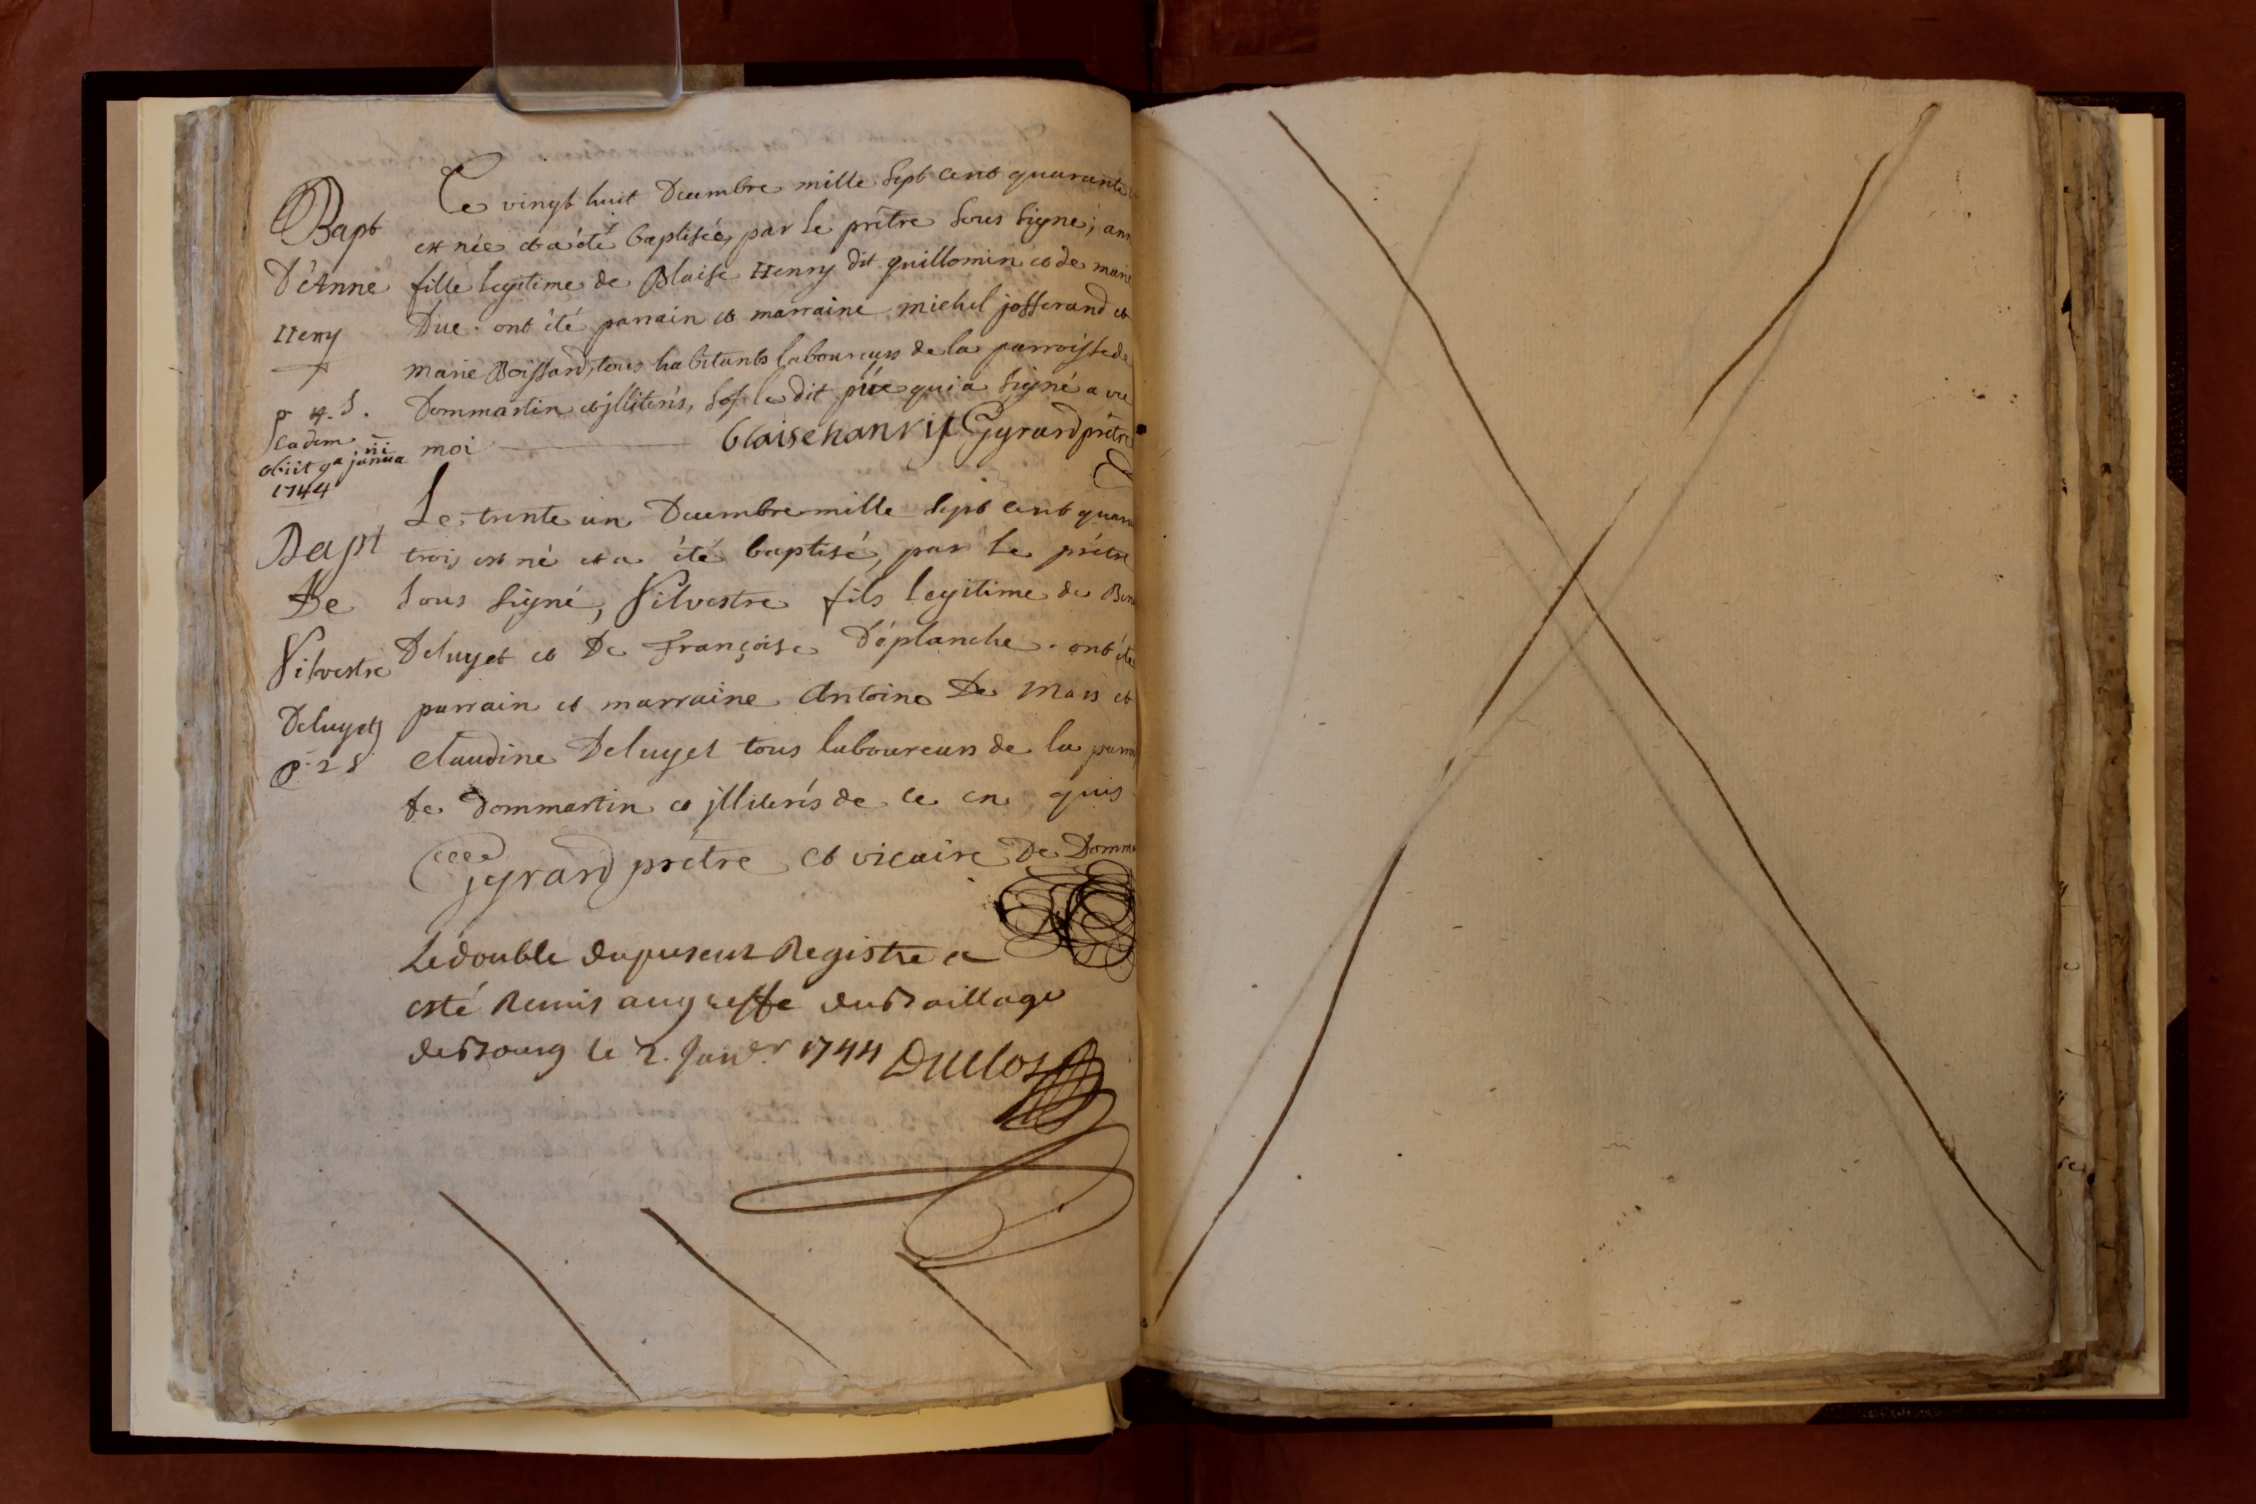 Bapt
D'Anne
Henry
p 4. s.
eadem
obiit 9a januarii
1744
Ce vingt huit Decembre mille sept cent quarante
est née et a été baptisée, par le prêtre sous signé; ann
fille legitime de Blaise Henry dit guillomin et de marie
Due. ont été parrain et marraine michel josserand et
marie Boissard, tous habitants laboureurs de la parroisse de
Dommartin et jlliterés, sof le dit pére qui a signé avec
moi blaise hanrij Gyrard prêtre
Bapt
De
Silvestre
Deluyet
p. 2 s
Le trente un Decembre mille sept cent quara
trois est né et a été baptisé, par le prêtre
sous signé, Silvestre fils legitime de Ben
Deluyet et De Françoise Déplanche. ont été
parrain et marraine Antoine De Mars et
Claudine Deluyet tous laboureurs de la parroi
se Dommartin et jlliterés de ce en quis
Gyrard prêtre et vicaire De Domma
Le double du pnt Registre a
esté Remis au greffe du Baillage
de Bourg le 2. Janvr 1744 Duclos